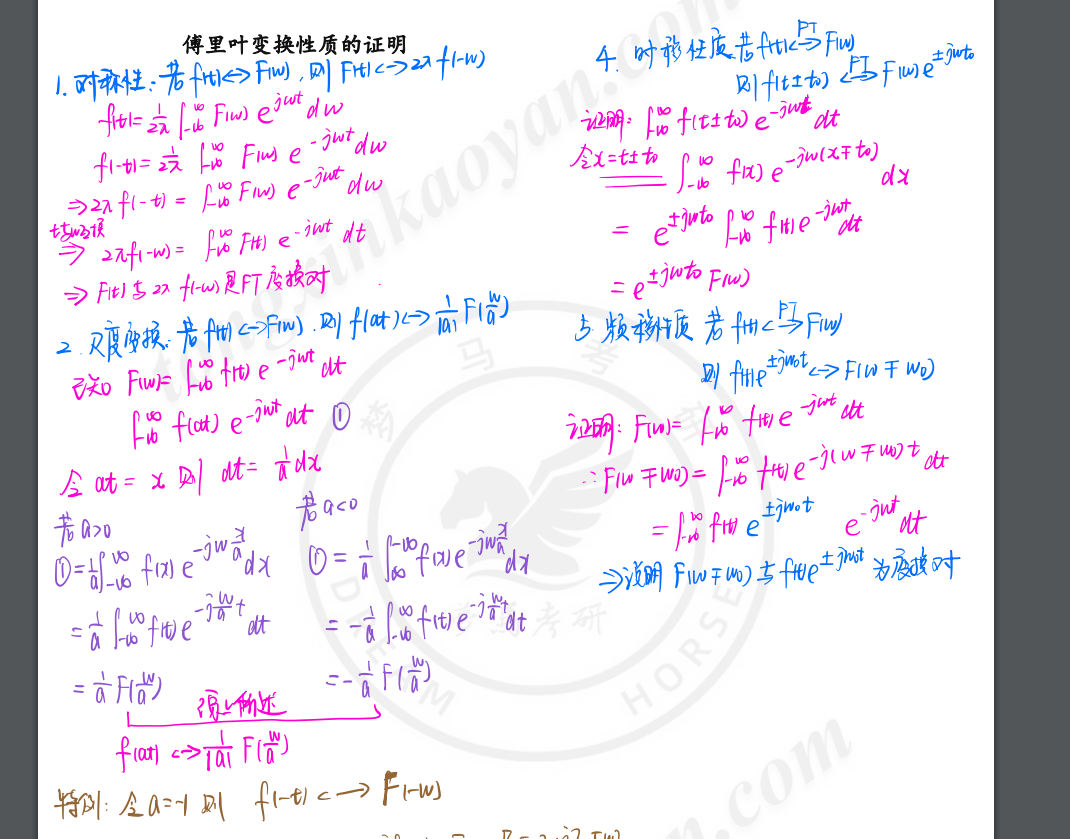 傅里叶变换性质的证明
1. 对称性: 若f(t)<->F(w), 则F(t)<->2πf(-w)
f(t)=1/2π ∫_{-∞}^{∞} F(w) e^{jwt} dw
f(-t)=1/2π ∫_{-∞}^{∞} F(w) e^{-jwt} dw
⇒2πf(-t) = ∫_{-∞}^{∞} F(w) e^{-jwt} dw
t与w互换
⇒ 2πf(-w) = ∫_{-∞}^{∞} F(t) e^{-jwt} dt
⇒ F(t)与2πf(-w)是FT变换对
2. 尺度变换: 若f(t)<->F(w), 则f(at)<->1/|a| F(w/a)
已知 F(w)=∫_{-∞}^{∞} f(t) e^{-jwt} dt
∫_{-∞}^{∞} f(at) e^{-jwt} dt ①
令at = x 则 dt = 1/a dx
若a>0
①=1/a ∫_{-∞}^{∞} f(x) e^{-jw x/a} dx
= 1/a ∫_{-∞}^{∞} f(t) e^{-j w/a t} dt
= 1/a F(w/a)
若a<0
① = 1/a ∫_{∞}^{-∞} f(x) e^{-jw x/a} dx
= -1/a ∫_{-∞}^{∞} f(t) e^{-j w/a t} dt
= -1/a F(w/a)
综上所述
f(at) <-> 1/|a| F(w/a)
特例: 令a=-1 则 f(-t) <-> F(-w)
4. 时移性质 若f(t) <-FT-> F(w)
则f(t±t0) <-FT-> F(w)e^{±jwt0}
证明: ∫_{-∞}^{∞} f(t±t0) e^{-jwt} dt
令x=t±t0 ∫_{-∞}^{∞} f(x) e^{-jw(x∓t0)} dx
= e^{±jwt0} ∫_{-∞}^{∞} f(t) e^{-jwt} dt
= e^{±jwt0} F(w)
5. 频移性质 若f(t) <-FT-> F(w)
则 f(t)e^{±jw0t} <-> F(w∓w0)
证明: F(w)= ∫_{-∞}^{∞} f(t) e^{-jwt} dt
∴F(w∓w0) = ∫_{-∞}^{∞} f(t) e^{-j(w∓w0)t} dt
= ∫_{-∞}^{∞} f(t) e^{±jw0t} e^{-jwt} dt
⇒说明 F(w∓w0)与f(t)e^{±jw0t}为变换对
马 考
DREAM HORSE
考研